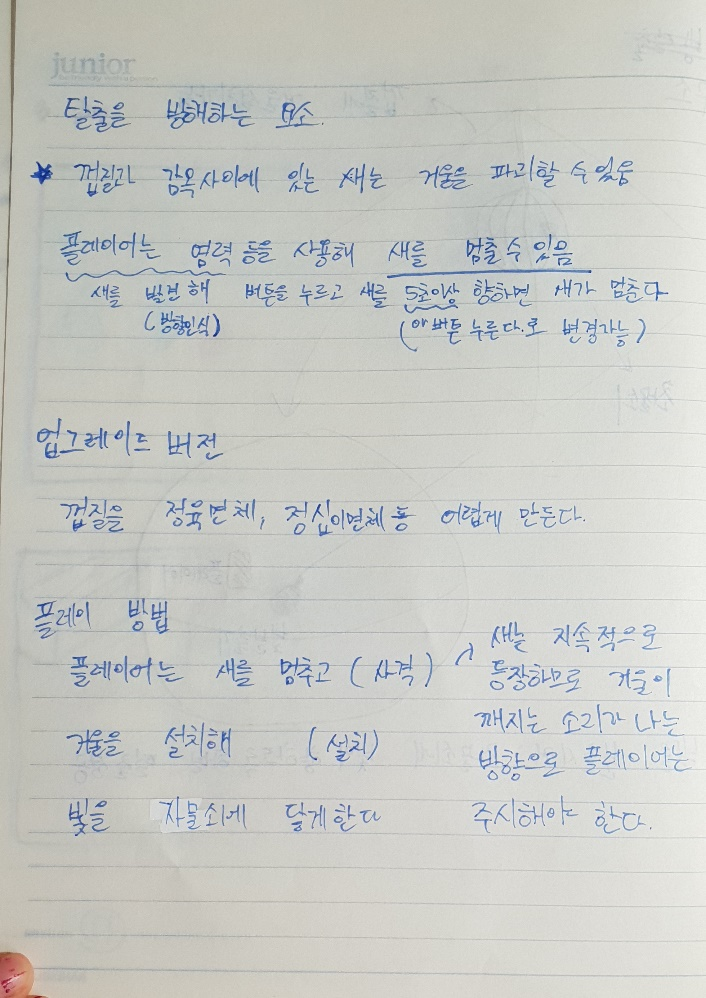 junior
탈출을 방해하는 요소.
★ 껍질과 감옥사이에 있는 새는 거울을 파괴할 수 있음
플레이어는 염력 등을 사용해 새를 멈출 수 있음
새를 발견해 버튼을 누르고 새를 5초이상 향하면 새가 멈춘다
(방향인식)
(아 버튼 누른다.로 변경가능)
업그레이드 버전
껍질을 정육면체, 정십이면체 등 어렵게 만든다.
플레이 방법
플레이어는 새를 멈추고 (사격)
거울을 설치해 (설치)
빛을 자물쇠에 닿게한다
새는 지속적으로
등장하므로 거울이
깨지는 소리가 나는
방향으로 플레이어는
주시해야 한다.